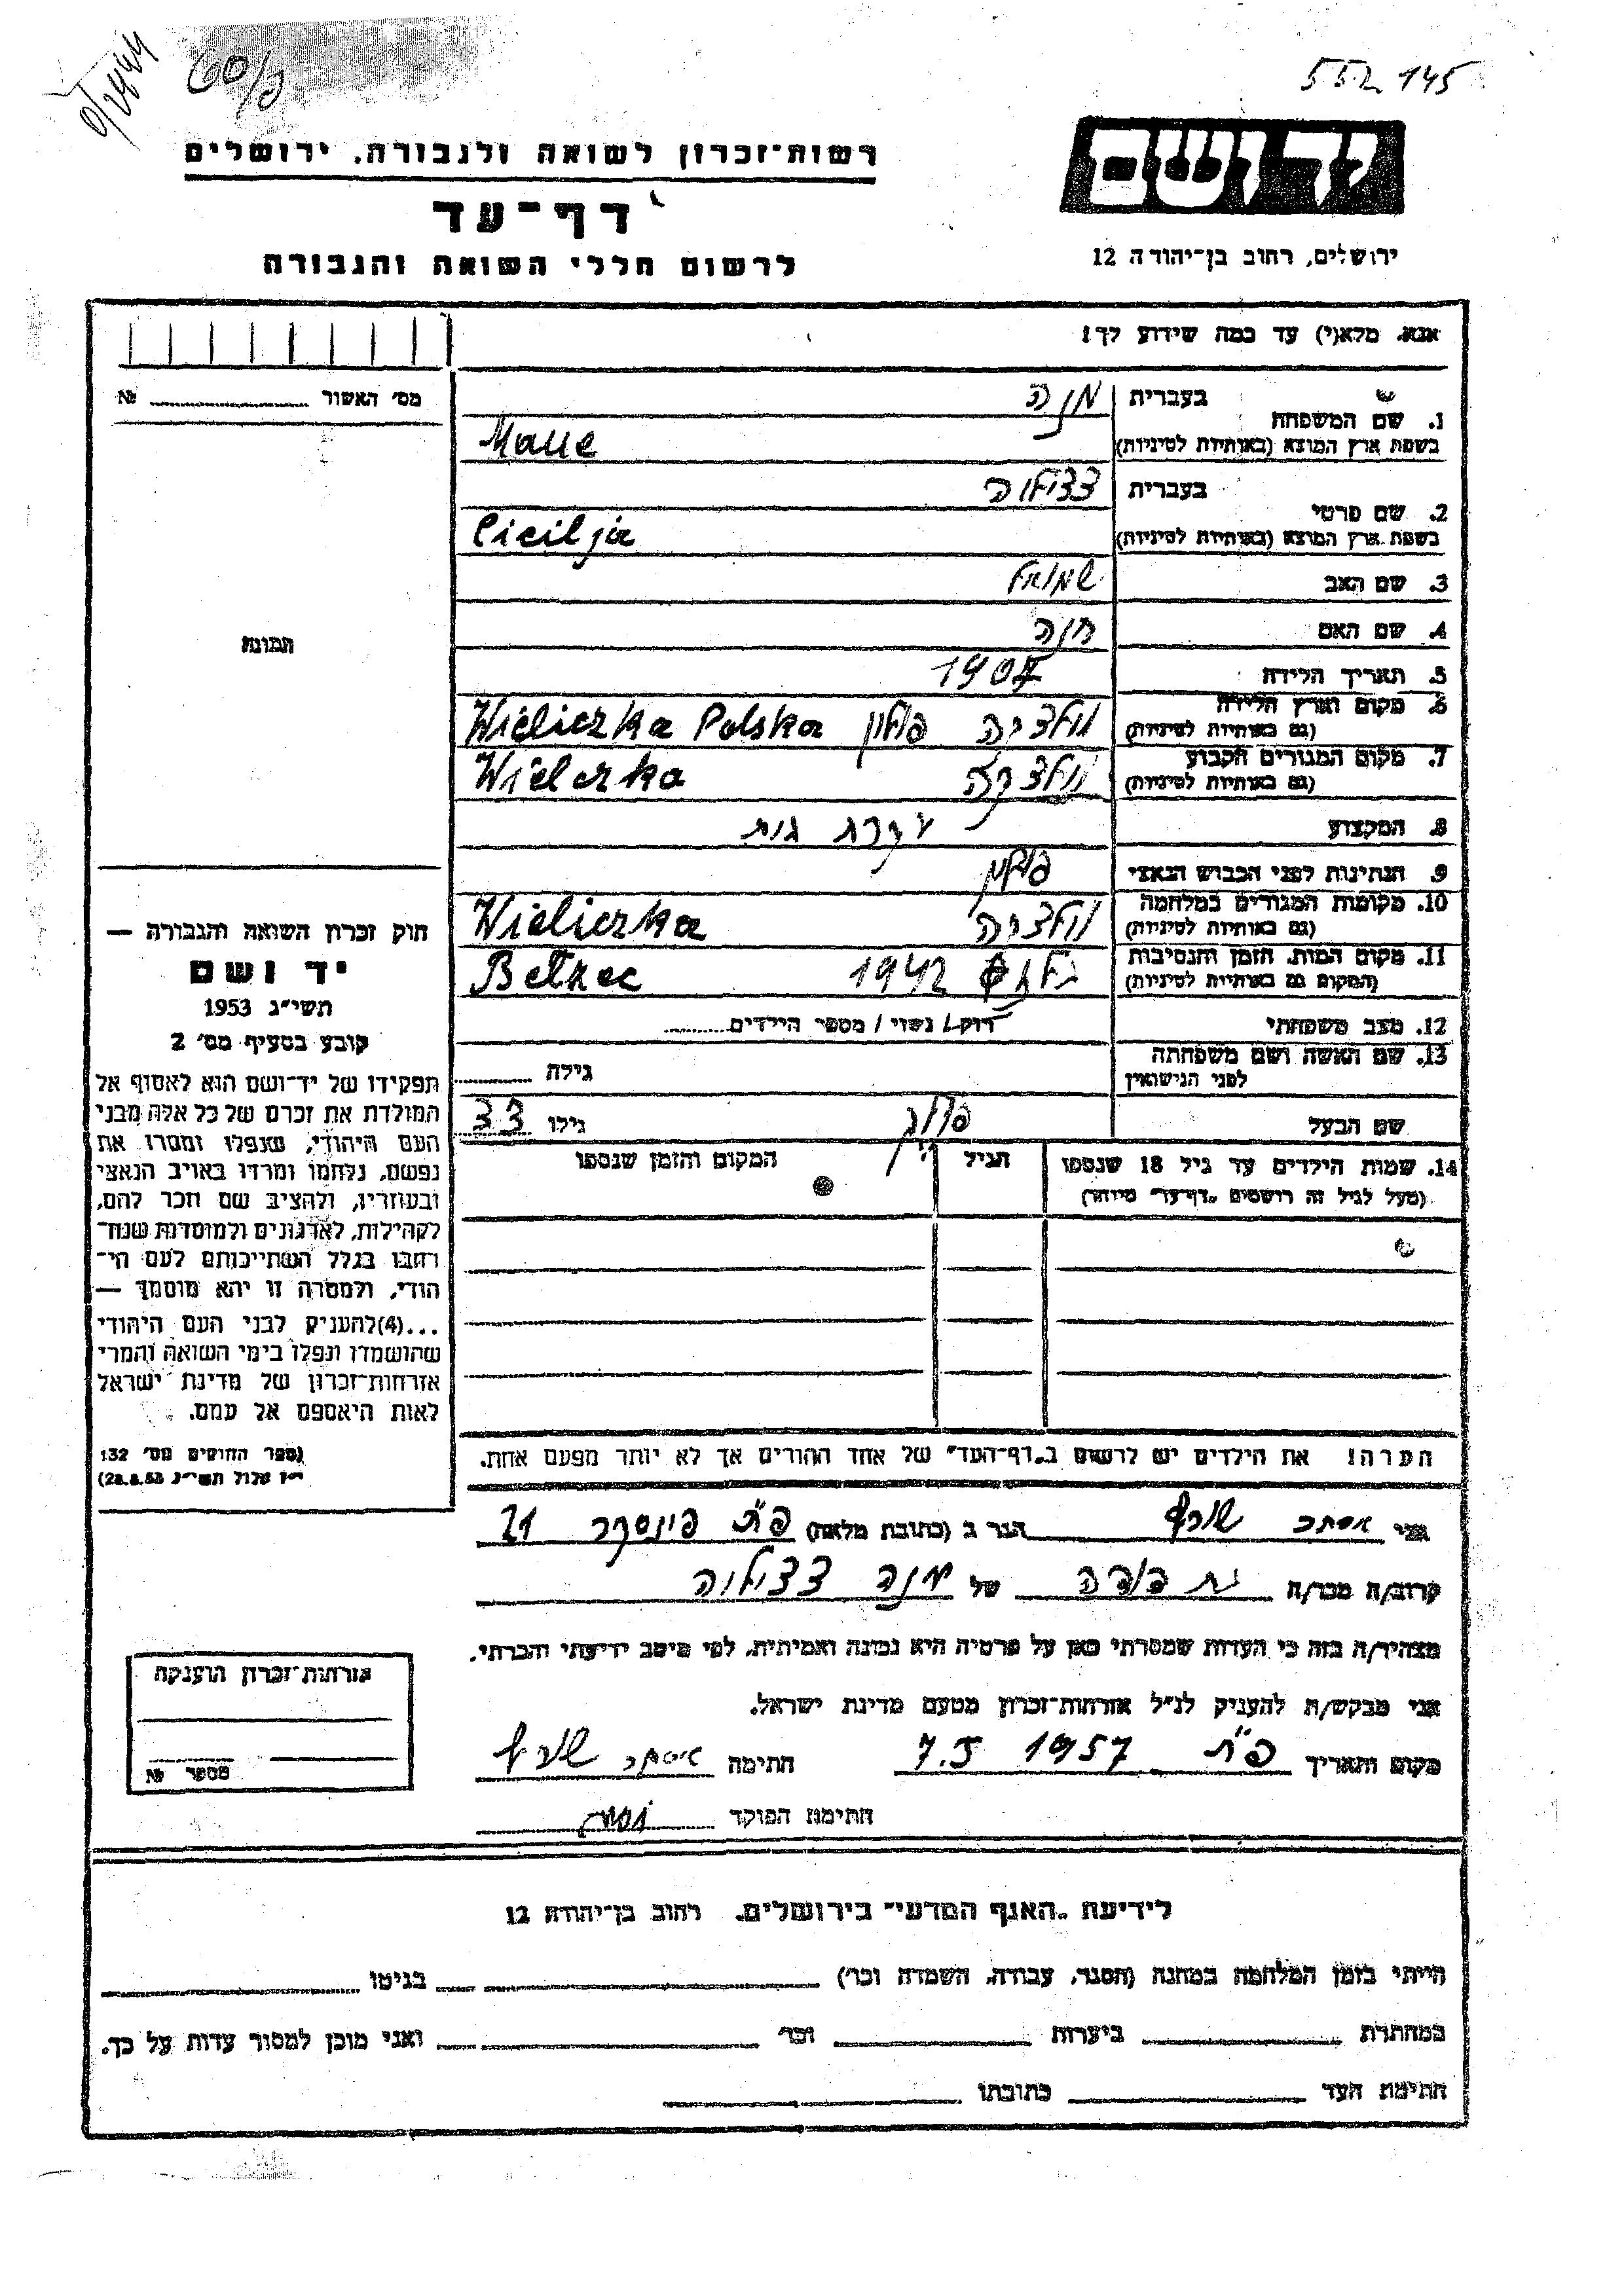 552 145
60/פ
רשות־זכרון לשואה ולגבורה, ירושלים
יד ושם
דף־עד
ירושלים, רחוב בן־יהודה 12
לרשום חללי השואה והגבורה
אנא, מלא(י) עד כמה שידוע לך!
מס' האשור № 
1. שם המשפחה
בעברית מנה
בשפת ארץ המוצא (באותיות לטיניות) Mane
2. שם פרטי
בעברית צצילוה
בשפת ארץ המוצא (באותיות לטיניות) Cicilja
3. שם האב שמואל
4. שם האם חנה
תמונה
5. תאריך הלידה 1907
6. מקום וארץ הלידה (גם באותיות לטיניות) פולין Wieliczka Polska
7. מקום המגורים הקבוע (גם באותיות לטיניות) Wielczka
8. המקצוע עקרת בית
9. הנתינות לפני הכבוש הנאצי פולין
10. מקומות המגורים במלחמה (גם באותיות לטיניות) Wieliczka
11. מקום המות, הזמן והנסיבות (המקום גם באותיות לטיניות) 1942 Bełzec
12. מצב משפחתי רוק / נשוי / מספר הילדים
13. שם האשה ושם משפחתה לפני הנישואין גילה
שם הבעל גילו 33
14. שמות הילדים עד גיל 18 שנספו הגיל המקום והזמן שנספו
(מעל לגיל זה רושמים „דף־עד" מיוחד)
הערה! את הילדים יש לרשום ב„דף־העד" של אחד ההורים אך לא יותר מפעם אחת.
חוק זכרון השואה והגבורה —
יד ושם
תשי"ג 1953
קובע בסעיף מס' 2
תפקידו של יד־ושם הוא לאסוף אל
המולדת את זכרם של כל אלה מבני
העם היהודי, שנפלו ומסרו את
נפשם, נלחמו ומרדו באויב הנאצי
ובעוזריו, ולהציב שם וזכר להם,
לקהילות, לארגונים ולמוסדות שנח־
רבו בגלל השתייכותם לעם הי־
הודי, ולמטרה זו יהא מוסמך —
...(4)להעניק לבני העם היהודי
שהושמדו ונפלו בימי השואה והמרי
אזרחות־זכרון של מדינת ישראל
לאות היאספם אל עמם.
(ספר החוקים מס' 132
י"ז אלול תשי"ג 28.8.53)
אני אסתר שורף הגר ב (כתובת מלאה) פ"ת פינסקר 21
קרוב/ה מכר/ה בת דודה של מנה צצילוה
מצהיר/ה בזה כי העדות שמסרתי כאן על פרטיה היא נכונה ואמיתית, לפי מיטב ידיעתי והכרתי.
אני מבקש/ת להעניק לנ"ל אזרחות־זכרון מטעם מדינת ישראל.
מקום ותאריך פ"ת 7.5 1957 חתימה אסתר שורף
חתימת הפוקד
אזרחות־זכרון הוענקה
מספר №
לידיעת „האגף המדעי" בירושלים, רחוב בן־יהודה 12
הייתי בזמן המלחמה במחנה (הסגר, עבודה, השמדה וכו') בגיטו
במחתרת ביערות וכו' ואני מוכן למסור עדות על כך.
חתימת העד כתובתו